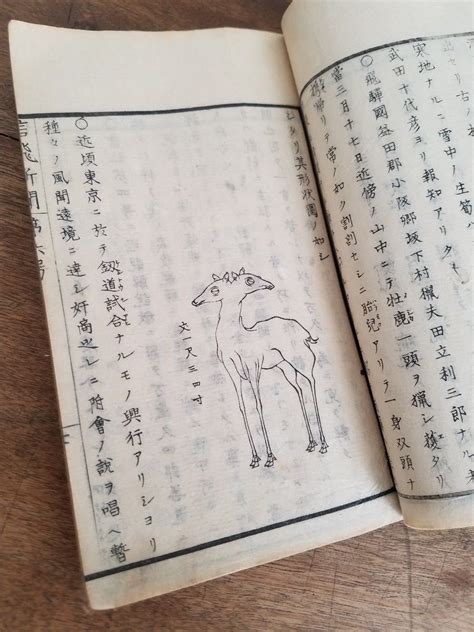 出セリ古ノ
寒地ナルニ雪中ノ生筍ハ
武田十代彦ヨリ報知アリタ
○飛騨國益田郡小阪郷坂下村獵夫田立利三郎ナル
當三月十七日近傍ノ山中ニテ牡鹿一頭ヲ獵シ獲タリ
歸リテ常ノ如ク割セシニ胎兒アリテ一身双頭ナ
其形状圖ノ如シ
丈一尺三四寸
○近頃東京ニ於テ劔道試合ナルモノ興行アリシヨリ
種々ノ風聞遠境ニ達シ奸商レニ附會ノ説ヲ唱ヘ暫
信飛新聞第六号